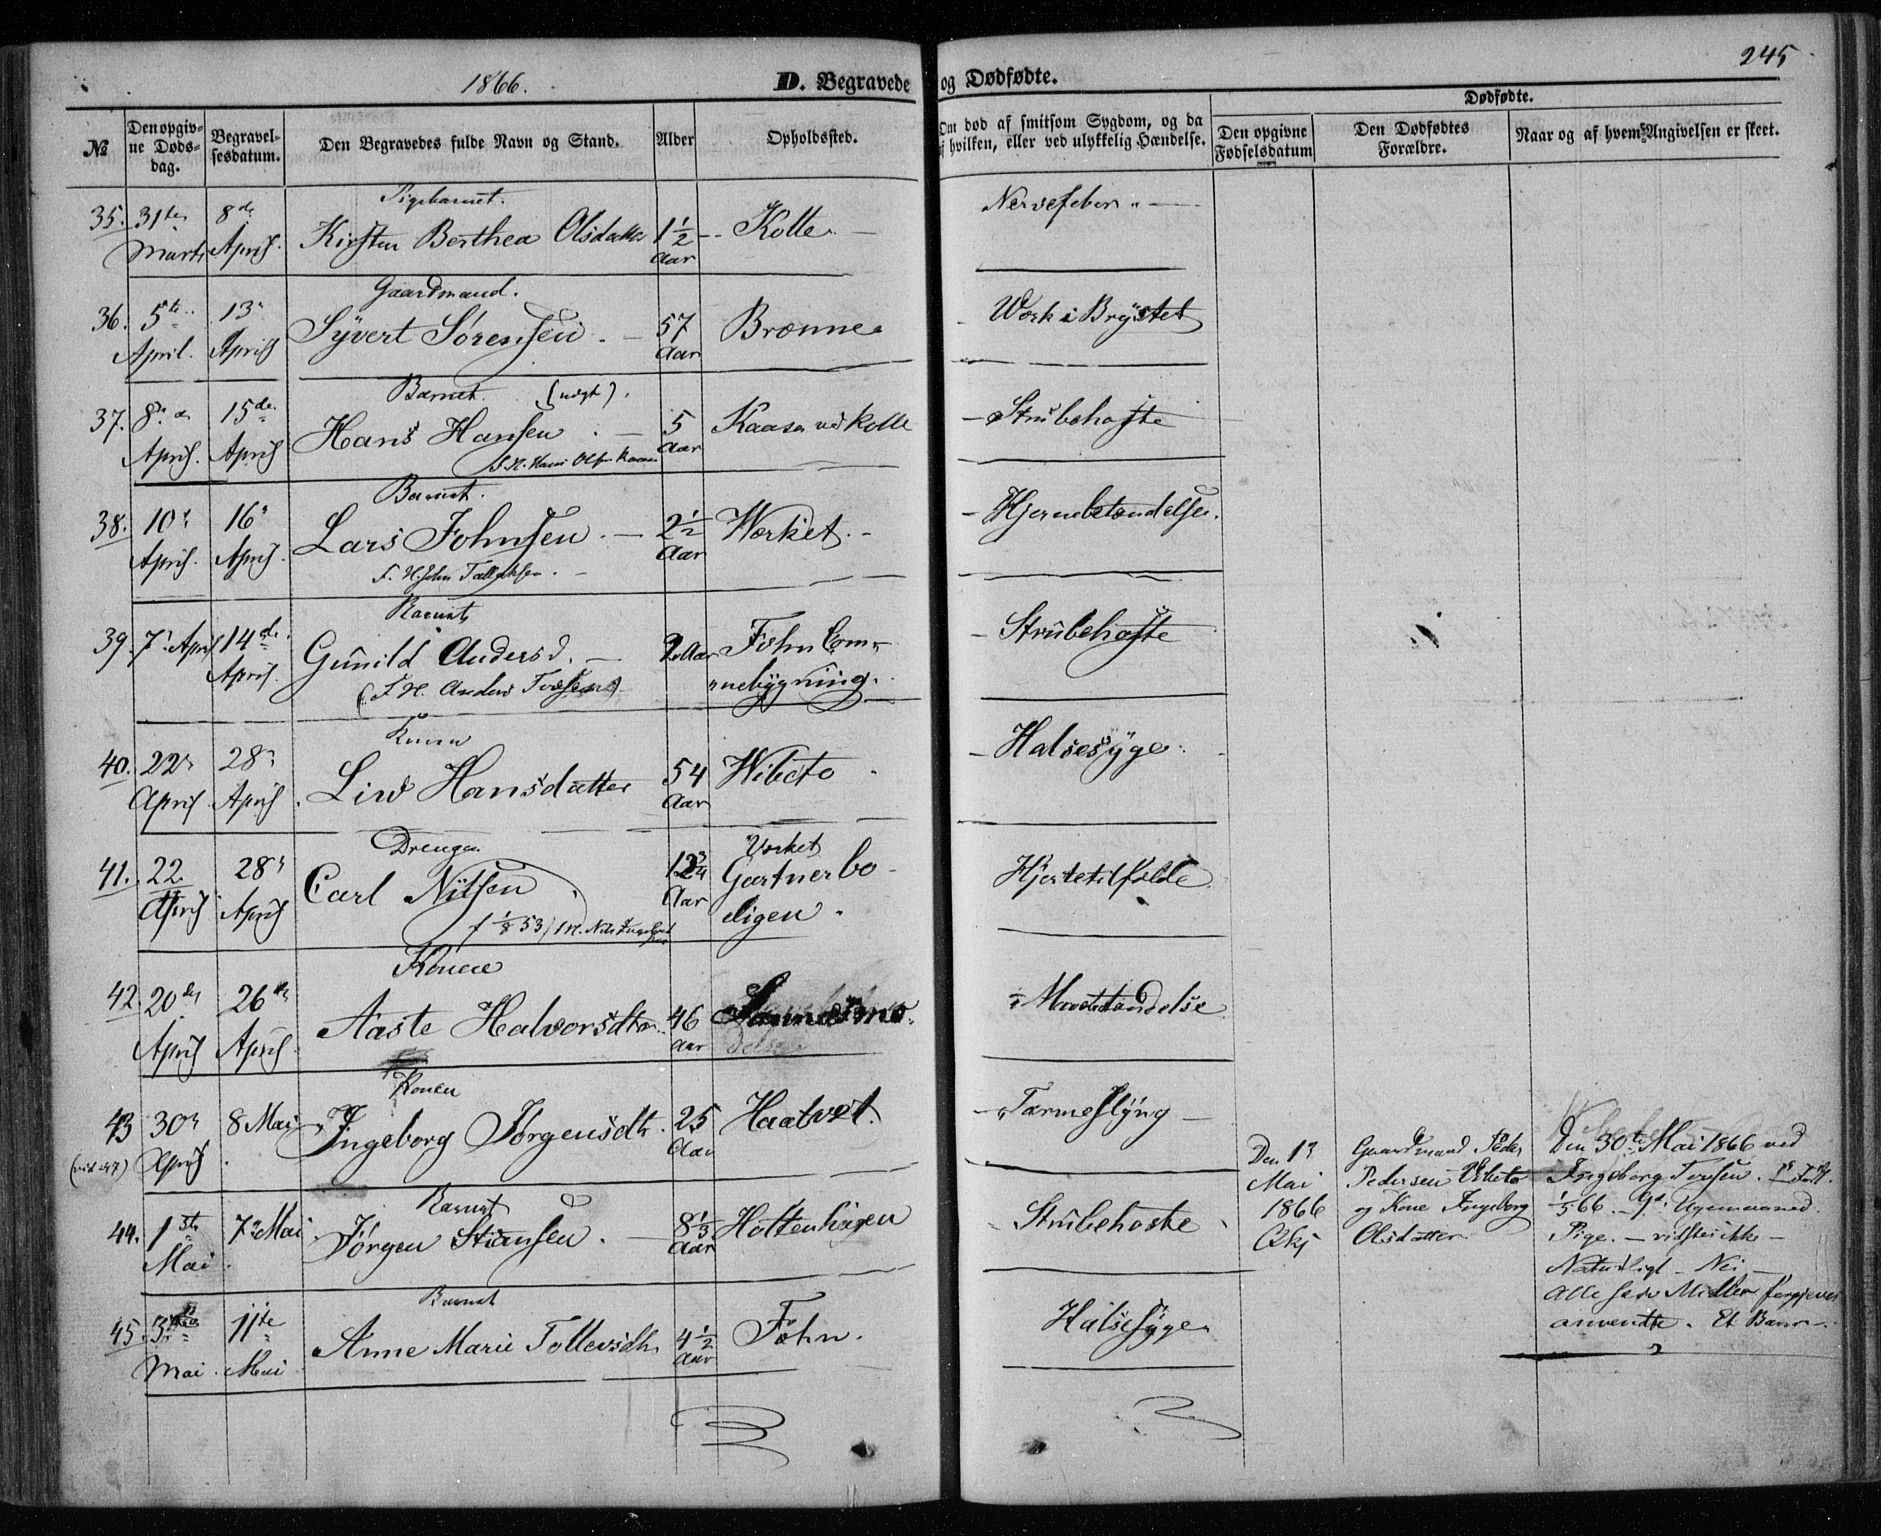 1866.
D. Begravede
og Dødfødte.
245
№
Den opgiv-
ne Døds-
dag.
Begravel-
sesdatum.
Den Begravedes fulde Navn og Stand.
Alder
Opholdssted.
Om død af smitsom Sygdom, og da
af hvilken, eller ved ulykkelig Hændelse.
Dødfødte.
Den opgivne
Fødselsdatum
Den Dødfødtes
Forældre.
Naar og af hvem Angivelsen er skeet.
Pigebarnet.
35. 31te 8de Kirsten Berthea Olsdatter 1½ Kolle. Nervefeber
Marts April. Aar
Gaardmand.
36. 5te 13 Syvert Sørensen. 57 Brønne Værk i Brystet
April. April Aar
Barnet. (uægt).
37. 8de 15de Hans Hansen. 5 Kaasa ved Kolle Strubehoste
April. April Aar
Barnet.
38. 10 16 Lars Johnsen. 2½ Værket. Hjernebetændelse.
April. April. Aar
F. H. John
Barnet
39. 7 April 14de Gunild Andersd. 2 Aar Fehn Com- Strubehoste
April. (F. H. Anders ) nebygning.
Konen
40. 22 28 Liv Hansdatter 54 Wibeto Halsesyge.
April April Aar
Drengen Værket
41. 22 28 Carl Nilsen 12¾ Gartnerbo- Hjertetilfælde.
April April Aar ligen.
f 1/8 53
Konen
42. 20de 26de Aaste Halvorsdtr. 46 Mavebetændelse
April April Aar
Konen
43 30 8 Mai Ingeborg Jørgensdtr. 25 Haatvet. Tarmeslyng
(vid 47) April Aar
Barnet
44. 1ste 7 Mai Jørgen Stiansen. 8⅓ Hottenhagen Strubehoste
Mai Aar
Barnet
45. 3 11te Anne Marie Tollevsdtr. 4½ Fehn. Halsesyge
Mai. Mai Aar
Den 1
Mai
1866
Gaardmand Peder
Pedersen Vibeto
og Kone Ingeborg
Olsdatter
Den 30te Mai 1866 ved
Ingeborg
1/5 66.
Pige. — vidstes ikke —
Naturligt — Nei —
Alle Midler forgjeves
anvendte. Et Barn.